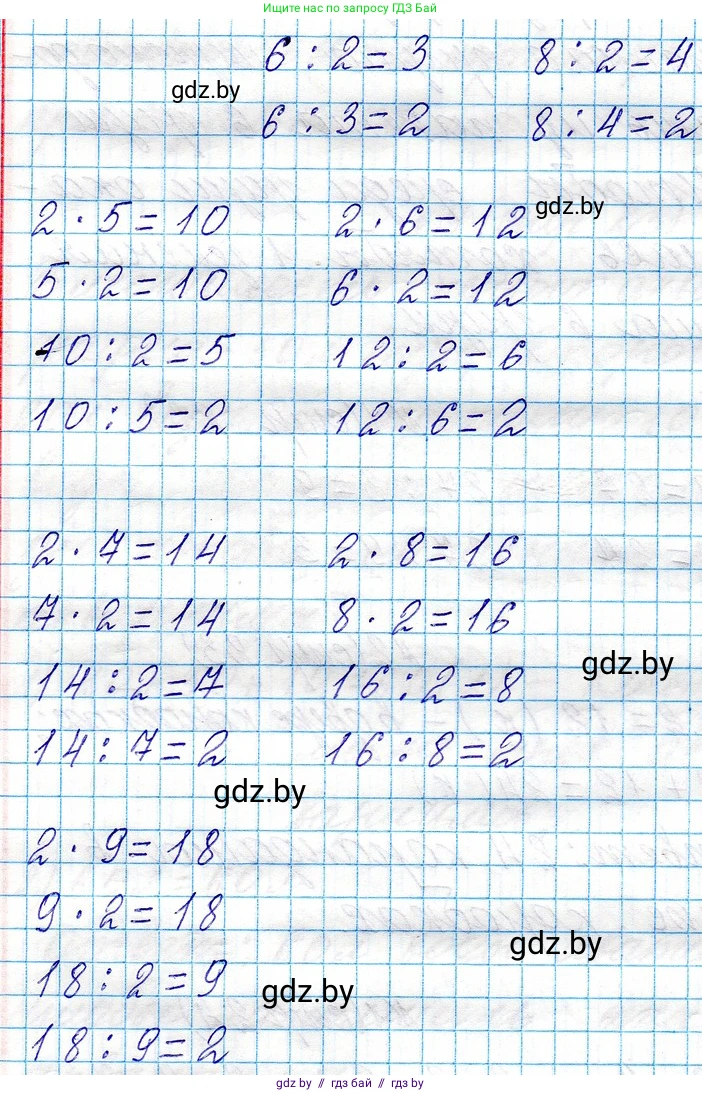 Ищите нас по запросу ГДЗ Бай
6 : 2 = 3 8 : 2 = 4
gdz.by
6 : 3 = 2 8 : 4 = 2
gdz.by
2 · 5 = 10 2 · 6 = 12
5 · 2 = 10 6 · 2 = 12
10 : 2 = 5 12 : 2 = 6
10 : 5 = 2 12 : 6 = 2
2 · 7 = 14 2 · 8 = 16
7 · 2 = 14 8 · 2 = 16
gdz.by
14 : 2 = 7 16 : 2 = 8
14 : 7 = 2 16 : 8 = 2
gdz.by
2 · 9 = 18
9 · 2 = 18
gdz.by
18 : 2 = 9
gdz.by
18 : 9 = 2
gdz by // гдз бай // гдз by